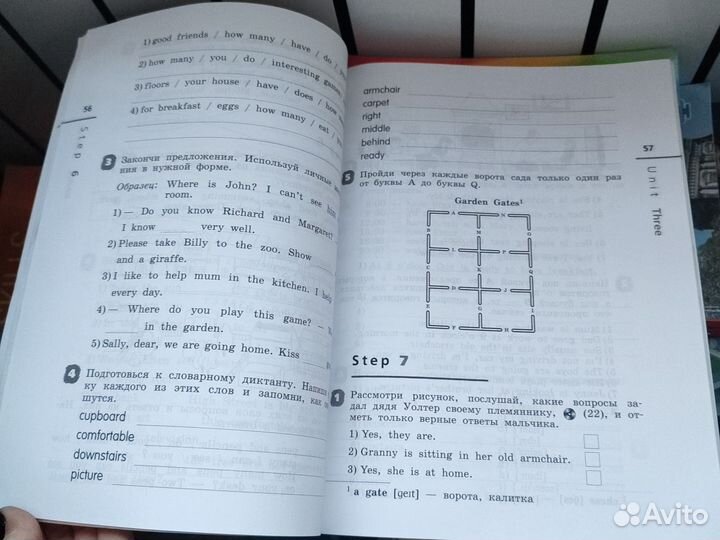 1) good friends / how many / have / do /
2) how many / you / do / interesting games
3) floors / your house / have / does / how
4) for breakfast / eggs / how many / eat /
56
Step 6
3 Закончи предложения. Используй личные
ния в нужной форме.
Образец: Where is John? I can't see him
room.
1) — Do you know Richard and Margaret?
I know ____ very well.
2) Please take Billy to the zoo. Show ____
and a giraffe.
3) I like to help mum in the kitchen. I help
every day.
4) — Where do you play this game? —
____ in the garden.
5) Sally, dear, we are going home. Kiss ____
4 Подготовься к словарному диктанту. Напиши
ку каждого из этих слов и запомни, как
шутся.
cupboard
comfortable
downstairs
picture
armchair
carpet
right
middle
behind
ready
57
Unit Three
5 Пройди через каждые ворота сада только один раз
от буквы A до буквы Q.
Garden Gates¹
A N
B M O
L P
C K Q
D J
E G I
F H
Step 7
1 Рассмотри рисунок, послушай, какие вопросы за-
дал дядя Уолтер своему племяннику, (22), и от-
меть только верные ответы мальчика.
1) Yes, they are.
2) Granny is sitting in her old armchair.
3) Yes, she is at home.
¹ a gate [geɪt] — ворота, калитка
Avito